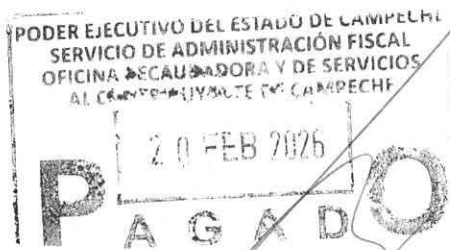 PODER EJECUTIVO DEL ESTADO DE CAMPECHE
SERVICIO DE ADMINISTRACIÓN FISCAL
OFICINA RECAUDADORA Y DE SERVICIOS
AL CONTRIBUYENTE DE CAMPECHE
20 FEB 2026
PAGADO